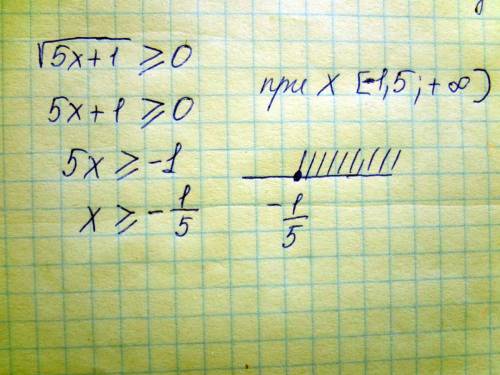 √5x+1 ⩾ 0
5x+1 ⩾ 0
5x ⩾ -1
x ⩾ - 1/5
при x [-1,5; +∞)
- 1/5